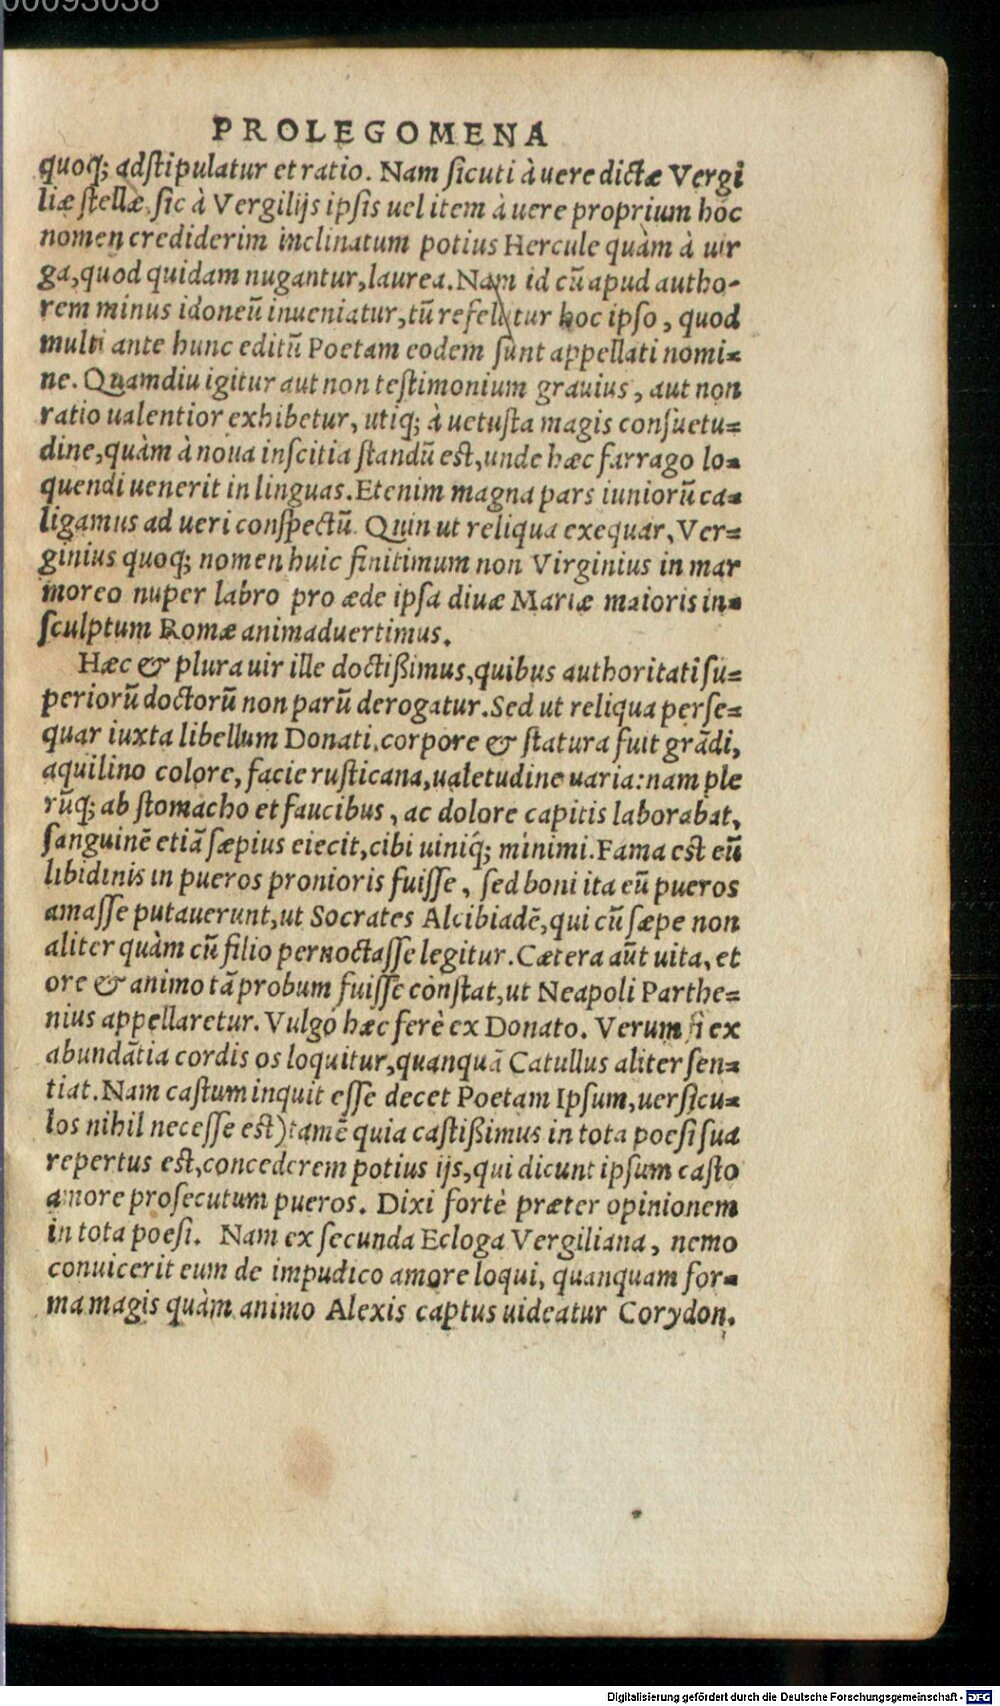 00093038
PROLEGOMENA
quoq; adstipulatur et ratio. Nam sicuti à uere dictæ Vergi
liæ stellæ, sic à Vergilijs ipsis uel item à uere proprium hoc
nomen crediderim inclinatum potius Hercule quàm à uir
ga, quod quidam nugantur, laurea. Nam id cũ apud autho-
rem minus idoneũ inueniatur, tũ refellitur hoc ipso, quod
multi ante hunc editũ Poetam eodem sunt appellati nomi=
ne. Quamdiu igitur aut non testimonium grauius, aut non
ratio ualentior exhibetur, utiq; à uetusta magis consuetu=
dine, quàm à noua inscitia standũ est, unde hæc farrago lo=
quendi uenerit in linguas. Etenim magna pars iuniorũ ca=
ligamus ad ueri conspectũ. Quin ut reliqua exequar, Ver=
ginius quoq; nomen huic finitimum non Virginius in mar
moreo nuper labro pro æde ipsa diuæ Mariæ maioris in=
sculptum Romæ animaduertimus.
Hæc & plura uir ille doctißimus, quibus authoritati su=
periorũ doctorũ non parũ derogatur. Sed ut reliqua perse=
quar iuxta libellum Donati, corpore & statura fuit grãdi,
aquilino colore, facie rusticana, ualetudine uaria: nam ple
rũq; ab stomacho et faucibus, ac dolore capitis laborabat,
sanguinẽ etiã sæpius eiecit, cibi uiniq́; minimi. Fama est eũ
libidinis in pueros pronioris fuisse, sed boni ita eũ pueros
amasse putauerunt, ut Socrates Alcibiadẽ, qui cũ sæpe non
aliter quàm cũ filio pernoctasse legitur. Cætera aũt uita, et
ore & animo tã probum fuisse constat, ut Neapoli Parthe=
nius appellaretur. Vulgó hæc ferè ex Donato. Verum si ex
abundãtia cordis os loquitur, quanquã Catullus aliter sen=
tiat. Nam castum inquit esse decet Poetam Ipsum, uersicu=
los nihil necesse est) tamẽ quia castißimus in tota poesi sua
repertus est, concederem potius ijs, qui dicunt ipsum casto
amore prosecutum pueros. Dixi fortè præter opinionem
in tota poesi. Nam ex secunda Ecloga Vergiliana, nemo
conuicerit eum de impudico amore loqui, quanquam for=
ma magis quàm animo Alexis captus uideatur Corydon.
Digitalisierung gefördert durch die Deutsche Forschungsgemeinschaft - DFG